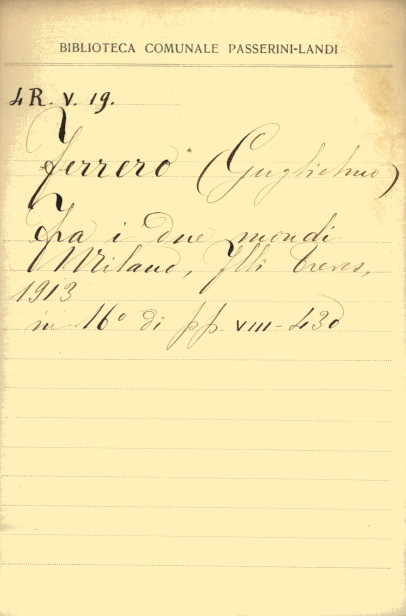 BIBLIOTECA COMUNALE PASSERINI-LANDI
4R. V. 19.
Ferrero (Guglielmo)
Fra i due mondi
Milano, Flli Treves,
1913
in 16° di pp. VIII-430